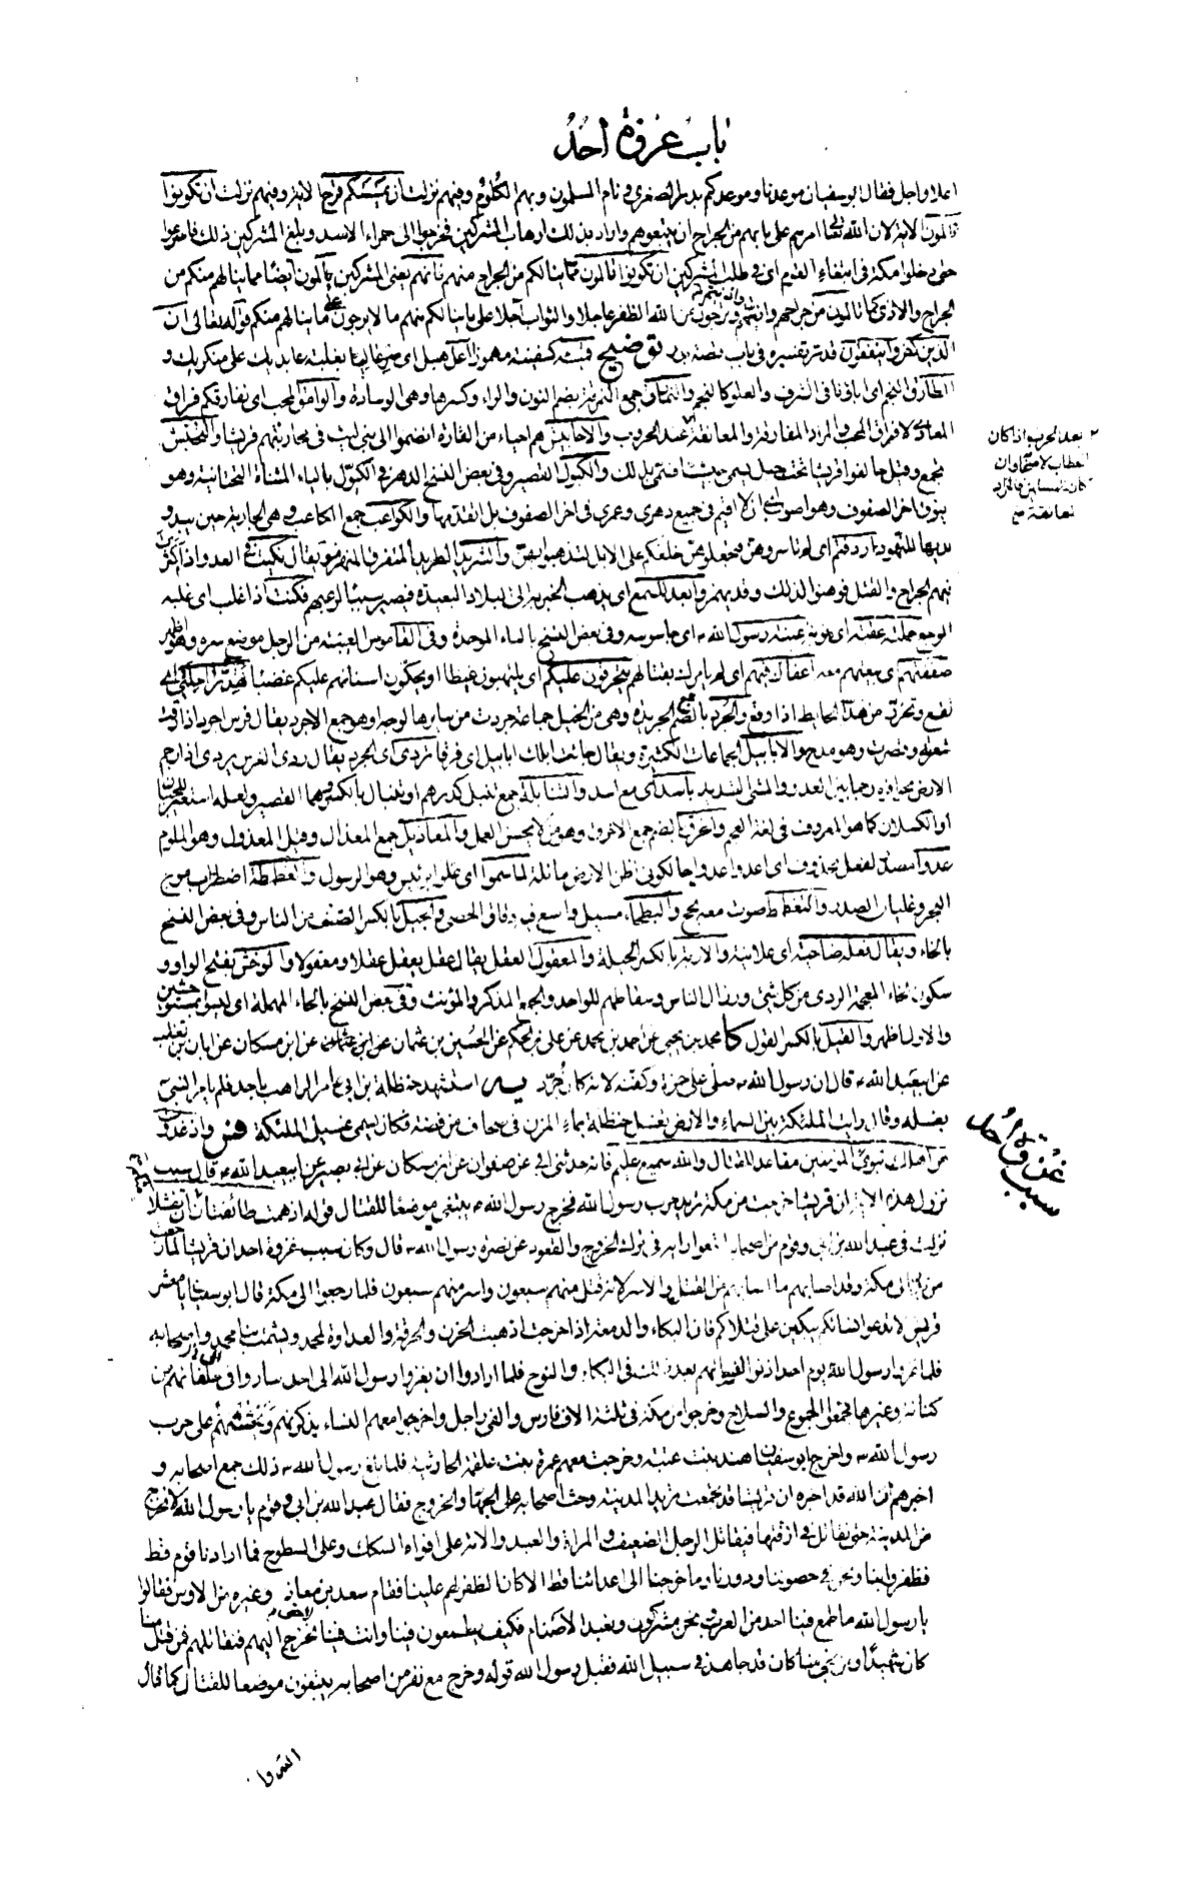 باب غزوة احد
اعلا واجل فقال ابو سفيان موعدنا وموعدكم بدر الصغرى ونام المسلمون وبهم الكلوم وفيهم نزلت ان يمسسكم قرح الاية وفيهم نزلت ان تكونوا
تالمون الاية لان الله تعالى امرهم على ما بهم من الجراح ان يتبعوهم واراد بذلك ارهاب المشركين فخرجوا الى حمراء الاسد وبلغ المشركين ذلك فاسرعوا
حتى دخلوا مكة في ابتغاء القوم اى في طلب المشركين ان تكونوا تالمون مما ينالكم من الجراح منهم فانهم يعنى المشركين يالمون ايضا مما ينالهم منكم من
الجراح والاذى كما تالمون من جراحهم وانتم وترجون من الله الظفر عاجلا والثواب آجلا على ما ينالكم منهم ما لا يرجون على ما ينالهم منكم قوله تعالى ان
الذين كفروا ينفقون قد مر تفسيره في باب قصة بدر توضيح اعل هبل اى صر غاليا بغلبة عابديك على منكريك و
الطارق النجم اى اباؤنا في الشرف والعلو كالنجم والنمارق جمع النمرقة بضم النون والراء وكسرها وهى الوسادة والوامق المحب اى نفارقكم فراق
المعادى لا فراق المحب والمراد المفارقة والمعانقة عند الحروب والاحابيش هم احياء من القارة انضموا الى بنى ليث في محاربتهم قريشا والتحبش
التجمع وقيل حالفوا قريشا تحت جبل يسمى حبيشا فسمى بذلك والكيول القصير وفي بعض النسخ الدهر في الكيول بالياء المثناة التحتانية وهو
اخر الصفوف وهو اصوب اى ان لا اقيم في جميع دهرى وعمرى في اخر الصفوف بل اتقدمها والكواعب جمع الكاعب وهى الجارية حين يبدو
ثديها للنهود اى له ناسروهن على الابل لتذهبوا بهن والشريد الطريد المتفرق المنهزم ويقال نكيت في العدو اذا اكثرت
فيهم الجراح والقتل فوهنوا لذلك وقد يهمز وابعد للسمع اى يذهب الخبر به الى البلاد البعيدة فيصير سببا لرعبهم فكنت اذا غلب اى غلبه
الوجع حملته عقبة اى نوبة عيبة رسول الله ص اى جاسوسه وفي بعض النسخ بالباء الموحدة وفي القاموس العيبة من الرجل موضع سره وهو اظهر
صفقتهم اى بيعتهم معه يتحرقون عليكم اى يلتهبون غيظا او يحكون اسنانهم عليكم غضبا
تقع وتخر من هد الحايط اذا وقع والجرد بالضم الجريدة وهى من الخيل جماعة جردت من سايرها لوجه او هو جمع الاجرد يقال فرس اجرد اذا رقت
شعرته وقصرت وهو مدح والابابيل الجماعات الكثيرة ويقال جائت ابلك ابابيل اى فرقا تردى اى الجرد يقال ردى الفرس يردى اذا رجم
الارض بحوافره رجما بين العدو والمشى الشديد باسد اى مع اسد والتنابلة جمع تنبل كدرهم او تنبال بالكسر وهما القصير ولعله استعير للجبان
او الكسلان كما هو المعروف في لغة العجم واخرق بالضم جمع الاخرق وهو من لا يحسن العمل والمعاذيل جمع المعذال وقيل المعذول وهو الملوم
عدوا مصدر لفعل محذوف اى اعدوا عدوا حالكونى اظن الارض مائلة لما سموا اى علوا برئيس وهو الرسول والغطمطة اضطراب موج
البحر وغليان الصدر والتغطمط صوت معه بحح والبطحاء مسيل واسع فيه دقاق الحصى والجيل بالكسر الصنف من الناس وفي بعض النسخ
بالخاء ويقال فعله ضاحية اى علانية والاربة بالكسر الحيلة والمعقول العقل يقال عقل يعقل عقلا ومعقولا والوخش بفتح الواو و
سكون الخاء المعجمة الردى من كل شئ ورذال الناس وسقاطهم للواحد والجمع والمذكر والمؤنث وفي بعض النسخ بالحاء المهملة اى ليسوا بمستوحشين
والاول اظهر والقيل بالكسر القول كا محمد بن يحيى عن احمد بن محمد عن على بن الحكم عن الحسين بن عثمان عن ابن مسكان عن ابان بن تغلب
عن ابيعبد الله ع قال ان رسول الله ص صلى على حمزة وكفنه لانه كان جرد يه استشهد حنظلة بن ابى عامر الراهب باحد فلم يامر النبى
بغسله وقال رايت الملئكة بين السماء والارض تغسل حنظلة بماء المزن في صحاف من فضة فكان يسمى غسيل الملئكة فس واذ غدوت
من اهلك تبوئ المؤمنين مقاعد للقتال والله سميع عليم فانه حدثنى ابى عن صفوان عن ابن مسكان عن ابى بصير عن ابيعبد الله ع قال سبب
نزول هذه الاية ان قريشا خرجت من مكة تريد حرب رسول الله فخرج رسول الله ص يبتغى موضعا للقتال قوله اذ همت طائفتان ان تفشلا
نزلت في عبد الله بن ابى وقوم من اصحابه اتبعوا رايه في ترك الخروج والقعود عن نصرة رسول الله ص قال وكان سبب غزوة احد ان قريشا لما رجعت
من بدر الى مكة وقد اصابهم ما اصابهم من القتل والاسر لانه قتل منهم سبعون واسر منهم سبعون فلما رجعوا الى مكة قال ابو سفيان يا معشر
قريش لا تدعوا نسائكم يبكين على قتلاكم فان البكاء والدمعة اذا خرجت اذهبت الحزن والحرقة والعداوة لمحمد ويشمت بنا محمد واصحابه
فلما غزوا رسول الله يوم احد اذنوا لنسائهم بعد ذلك في البكاء والنوح فلما ارادوا ان يغزوا رسول الله الى احد ساروا في حلفائهم من
كنانة وغيرها فجمعوا الجموع والسلاح وخرجوا من مكة في ثلثة الاف فارس والفى راجل واخرجوا معهم النساء يذكرنهم ويحثثنهم على حرب
رسول الله ص واخرج ابو سفيان هند بنت عتبة وخرجت معهم عمرة بنت علقمة الحارثية فلما بلغ رسول الله ص ذلك جمع اصحابه و
اخبرهم ان الله قد اخبره ان قريشا قد تجمعت تريد المدينة وحث اصحابه على الجهاد والخروج فقال عبد الله بن ابى وقوم يا رسول الله لا تخرج
من المدينة حتى نقاتل في ازقتها فيقاتل الرجل الضعيف والمراة والعبد والامة على افواه السكك وعلى السطوح فما ارادنا قوم قط
فظفروا بنا ونحن في حصوننا ودورنا وما خرجنا الى اعدائنا قط الا كان الظفر لهم علينا فقام سعد بن معاذ وغيره من الاوس فقالوا
يا رسول الله ما طمع فينا احد من العرب ونحن مشركون ونعبد الاصنام فكيف يطمعون فينا وانت فينا لا حتى نخرج اليهم فنقاتلهم فمن قتل منا
كان شهيدا ومن نجى منا كان قد جاهد في سبيل الله فقبل رسول الله قوله وخرج مع نفر من اصحابه يبتغون موضعا للقتال كما قال
بعد الحرب واذا كان
الخطاب
كان للمسلمين فالمراد
المعانقة مع
غزوة احد
سبب